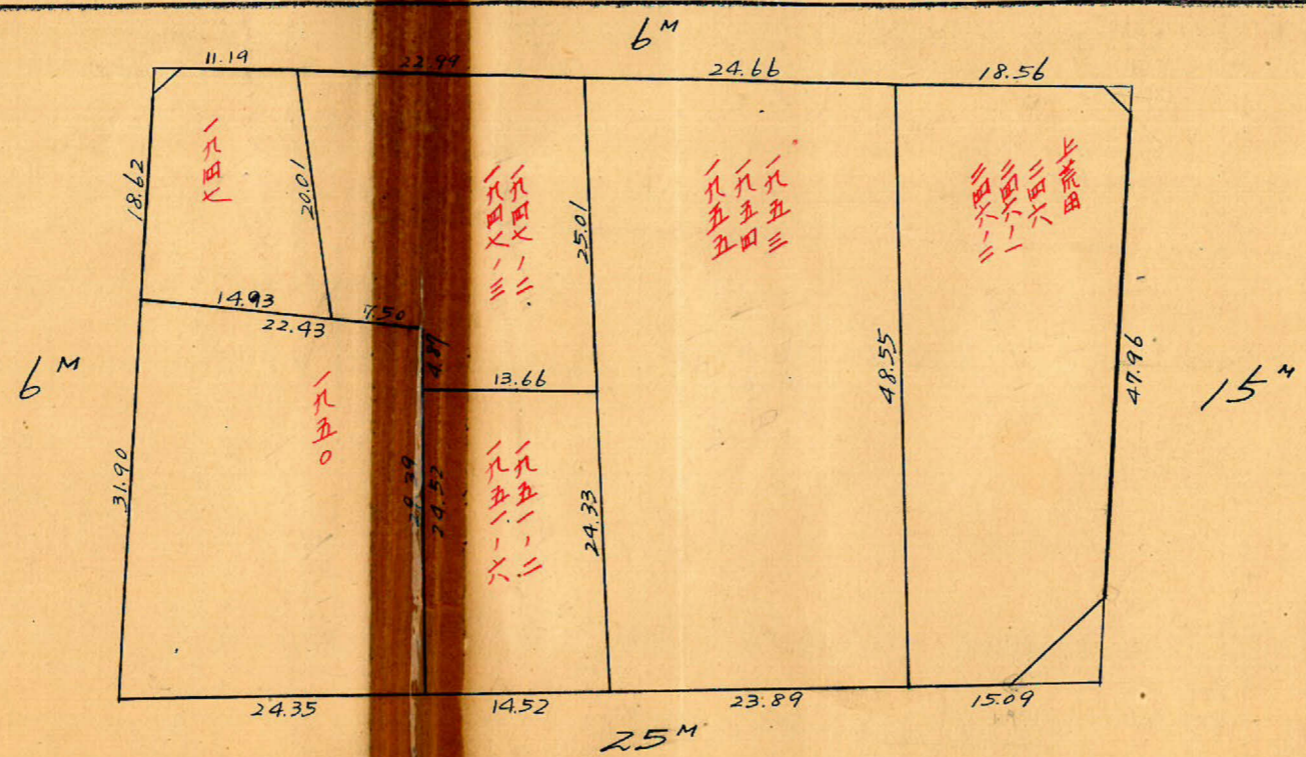 6M
11.19
22.99
24.66
18.56
18.62
一九四七
20.01
一九四七ノ二
一九四七ノ三
25.01
一九五三
一九五四
一九五五
上荒田
二四六
二四六ノ一
二四六ノ二
14.93
22.43
7.50
4.87
13.66
6M
48.55
47.96
15M
31.90
一九五〇
29.39
24.52
一九五一ノ二
一九五一ノ六
24.33
24.35
14.52
23.89
15.09
25M